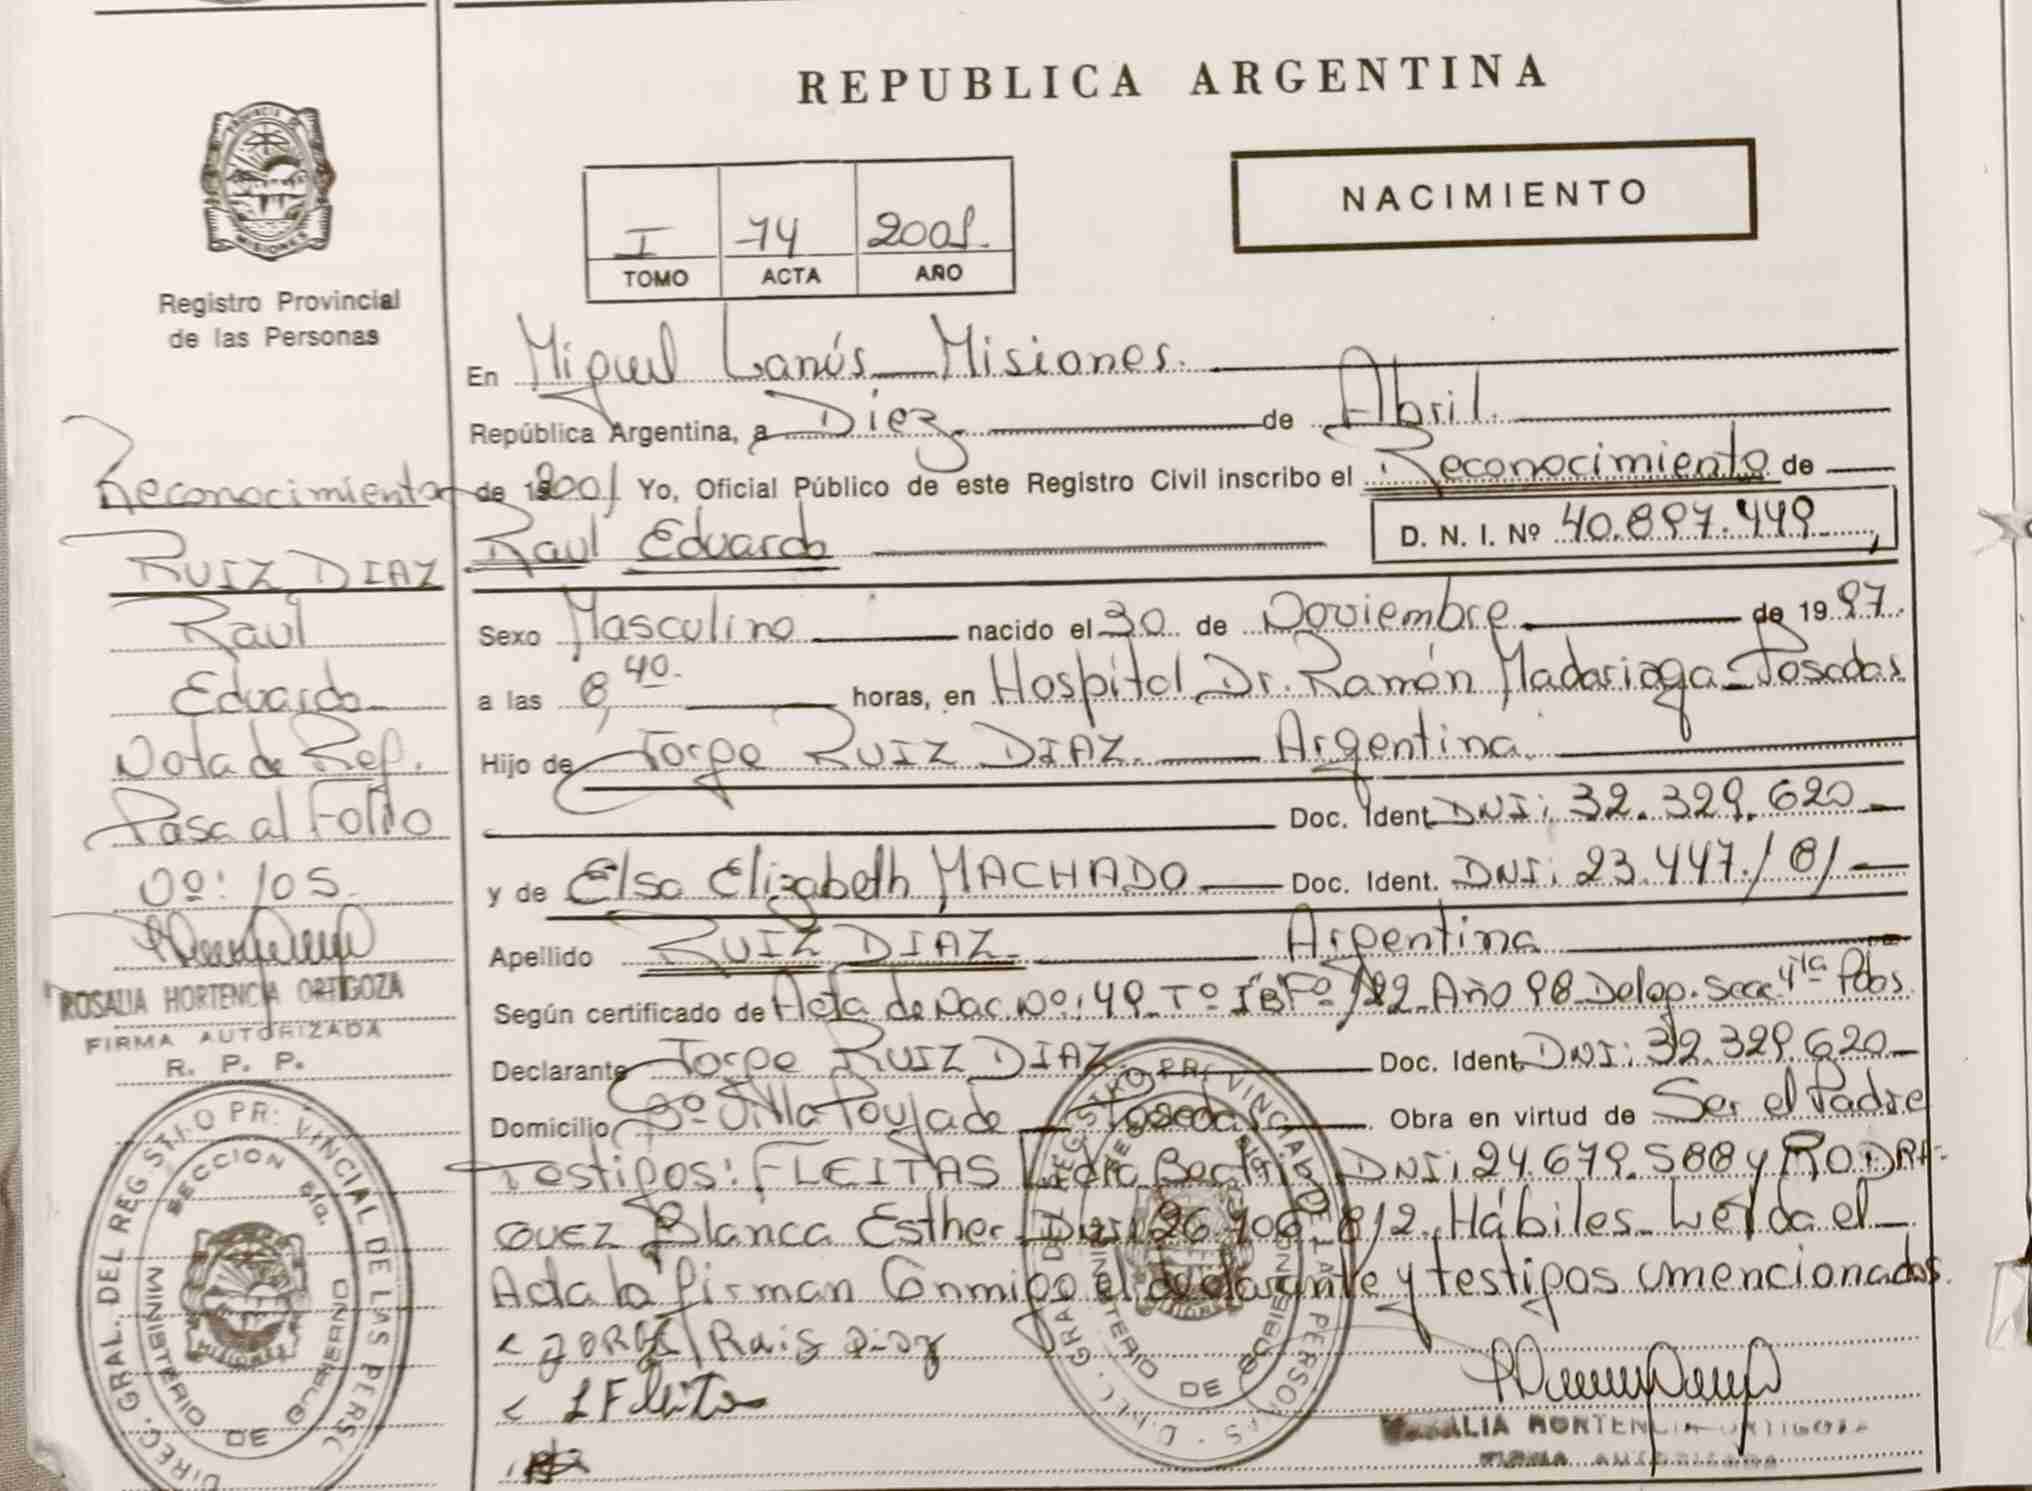 REPUBLICA ARGENTINA
NACIMIENTO
I 74 2001.
TOMO ACTA AÑO
PROVINCIA DE MISIONES
Registro Provincial
de las Personas
En Miguel Lanús Misiones.
República Argentina, a Diez de Abril.
de 2001 Yo, Oficial Público de este Registro Civil inscribo el Reconocimiento de
Raul Eduardo D. N. I. Nº 40.897.449
Sexo Masculino nacido el 30 de Noviembre de 1997.
a las 8,40. horas, en Hospital Dr. Ramón Madariaga - Posadas
Hijo de Jorge RUIZ DIAZ Argentina.
Doc. Ident. DNI: 32.329.620
y de Elsa Elizabeth MACHADO Doc. Ident. DNI: 23.447.181
Apellido RUIZ DIAZ. Argentina
Según certificado de Acta de Nac. Nº: 49 Tº I Fº Año 98 Deleg. Secc 4ta Pdas.
Declarante Jorge RUIZ DIAZ Doc. Ident. DNI: 32.329.620
Domicilio Vª Villa Poujade Posadas. Obra en virtud de Ser el Padre
Testigos: FLEITAS Beatriz DNI: 24.679.588 y RODRI-
GUEZ Blanca Esther DNI: 26.106.812. Hábiles. Leída el
Acta la firman Conmigo el declarante y testigos mencionados.
JORGE Ruiz Diaz
L Fleita
ROSALIA HORTENCIA ORTIGOZA
FIRMA AUTORIZADA
Reconocimiento
RUIZ DIAZ
Raúl
Eduardo
Nota de Ref.
Pasa al Folio
Nº: 105.
ROSALIA HORTENCIA ORTIGOZA
FIRMA AUTORIZADA
R. P. P.
DIREC. GRAL. DEL REGISTRO PROVINCIAL DE LAS PERSONAS
SECCION 6ta.
MINISTERIO DE GOBIERNO
MISIONES
DIREC. GRAL. DEL REGISTRO PROVINCIAL DE LAS PERSONAS
MINISTERIO DE GOBIERNO